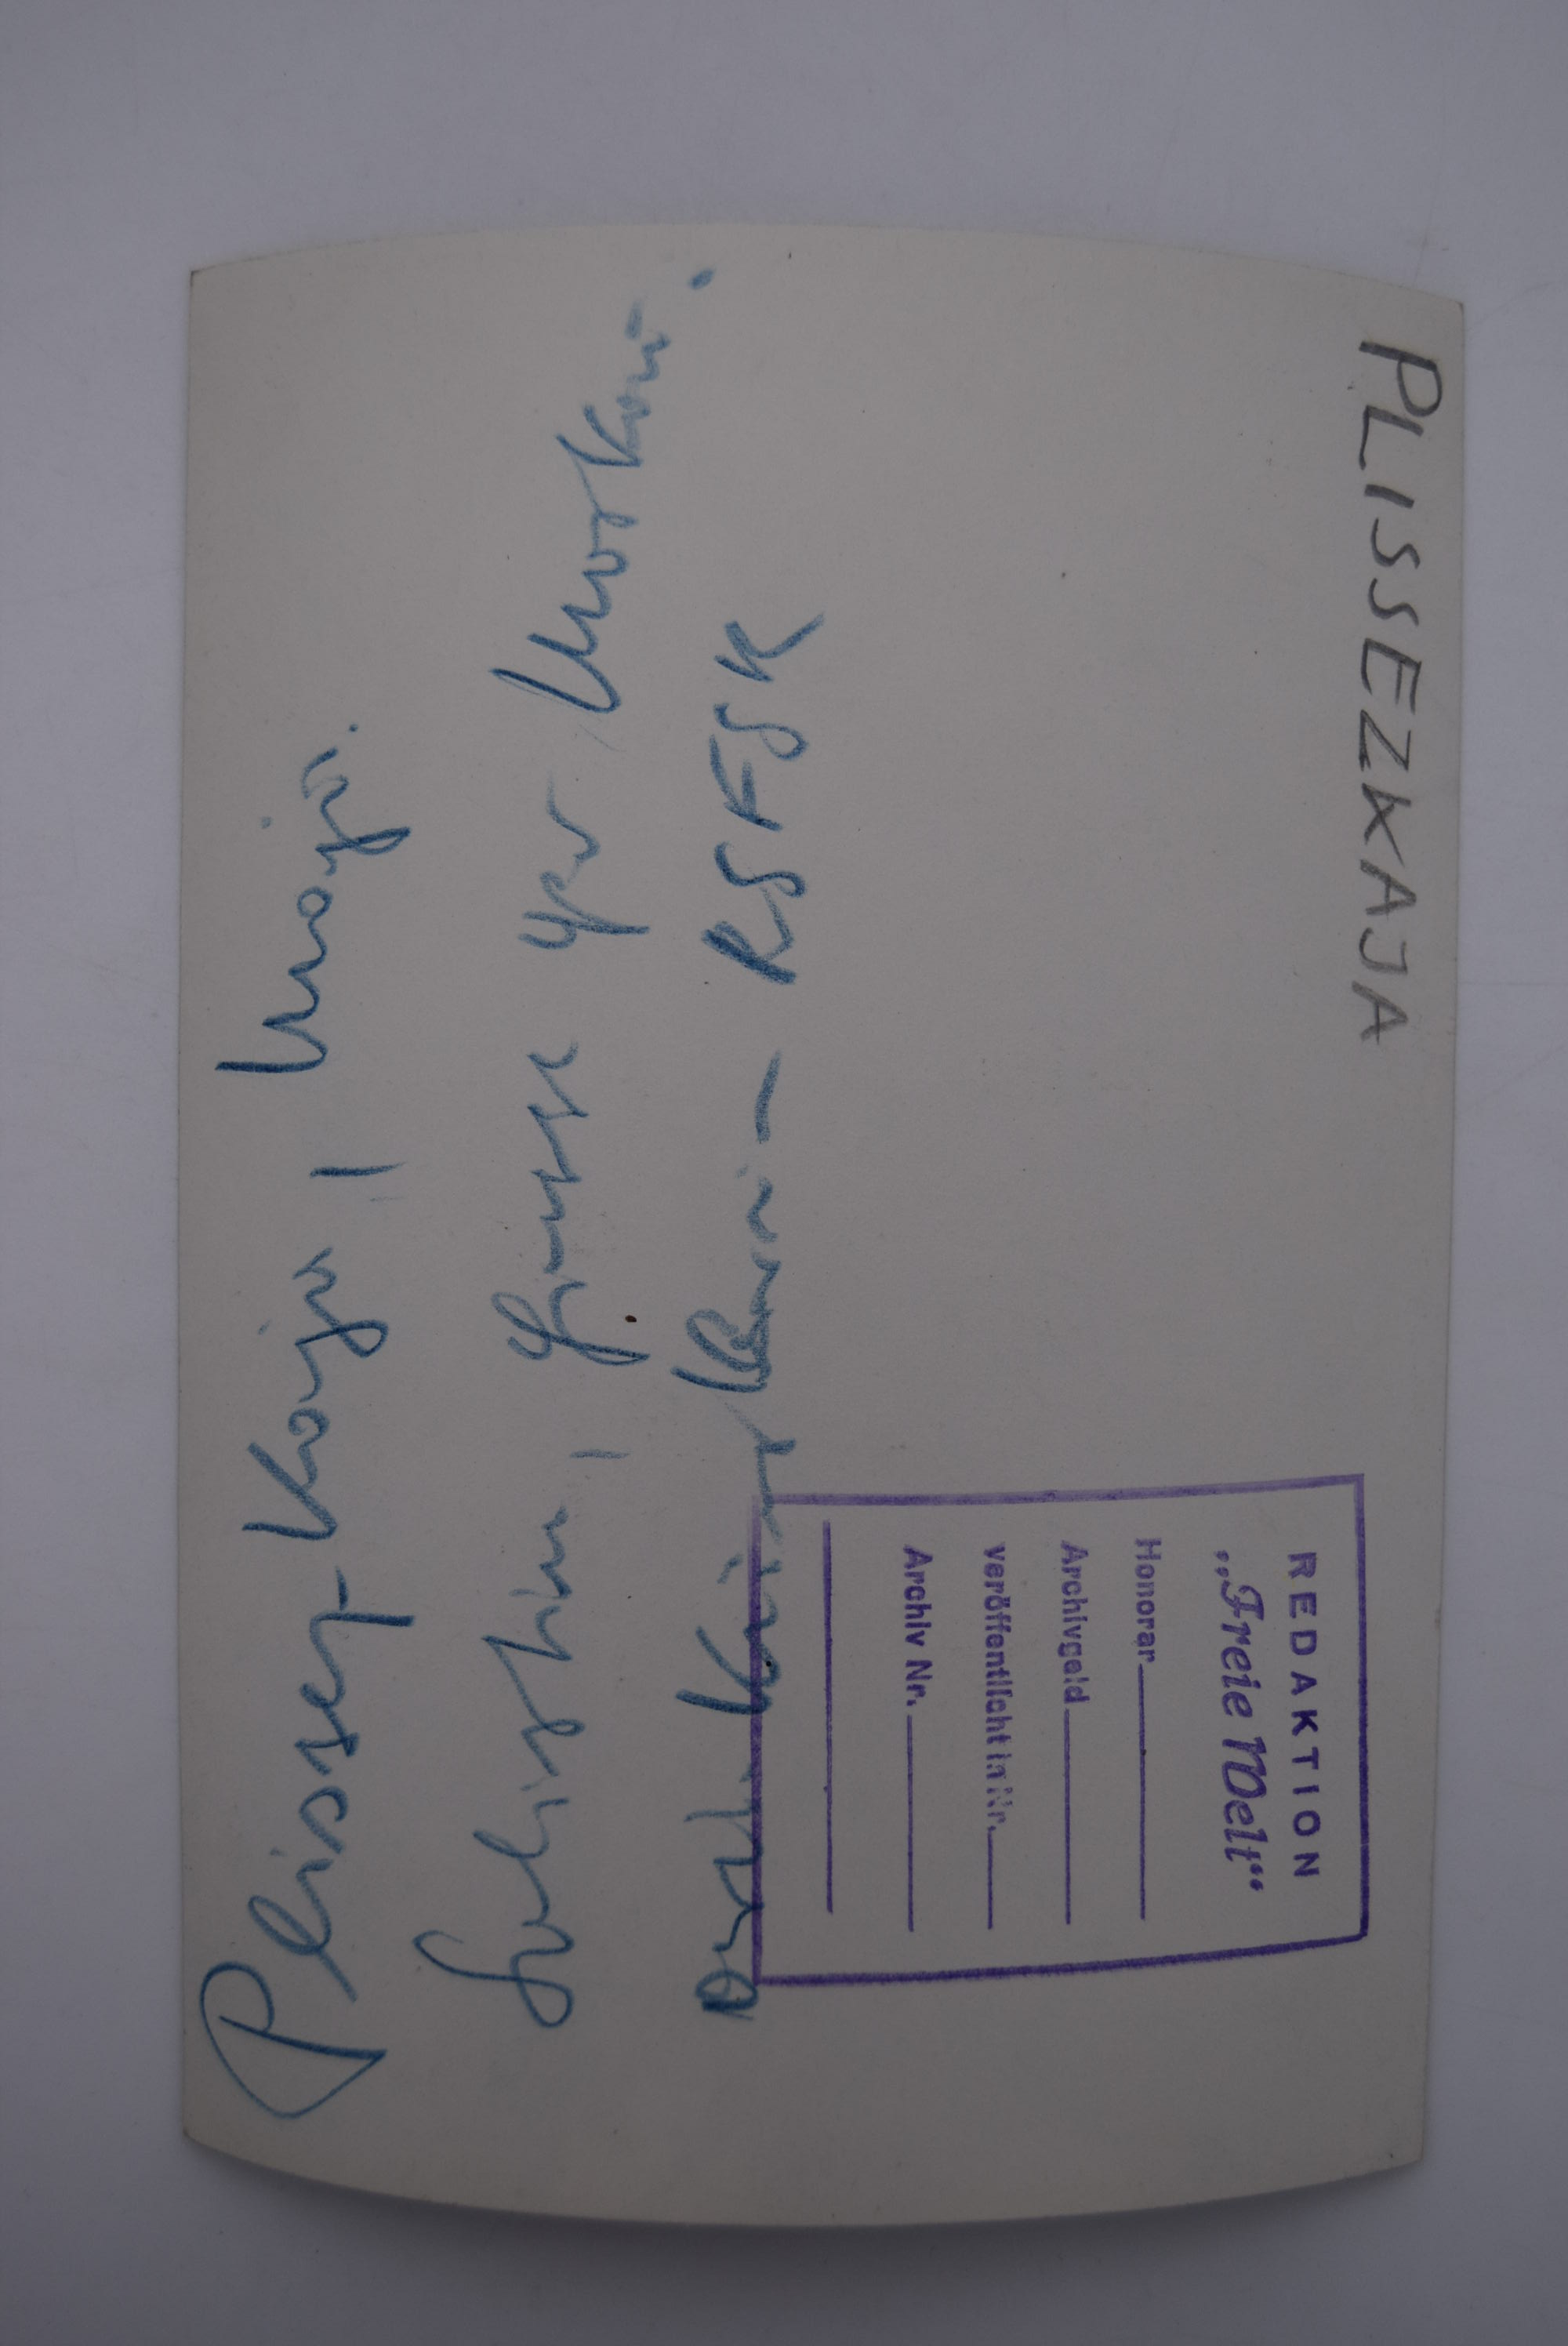 PLISSEZKAJA
Plissezkaja, Maja.
Solistin, Grosse Oper Moskau.
RSFSR
REDAKTION
„Freie Welt“
Honorar
Archivgeld
veröffentlicht in Nr.
Archiv Nr.